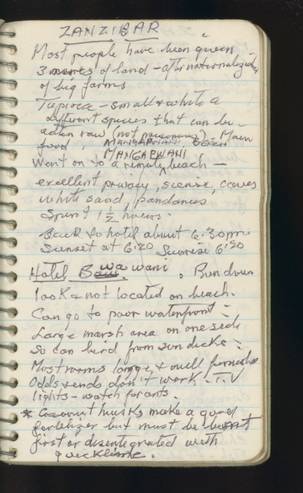 ZANZIBAR
Most people have been given
3 acres of land - after nationalizing
of big farms
Tapioca - small & white a
different species that can be
eaten raw (not poisonous). Main
food
MANGAPWANI
Went on to a remote beach -
excellent privacy, scenic, caves
white sand, pandanus
Spent 1½ hours.
Back to hotel about 6:30pm.
Sunset at 6:20 Sunrise 6:20
Hotel Bwawani, Run down
look & not located on beach.
Can go to poor waterfront.
Large marsh area on one side
so can bird from sun deck.
Most rooms large & well furnished
Odds & ends don't work - T.V
lights - watch for ants.
* Coconut husks make a good
fertilizer but must be burnt
first or disintegrated with
quicklime.